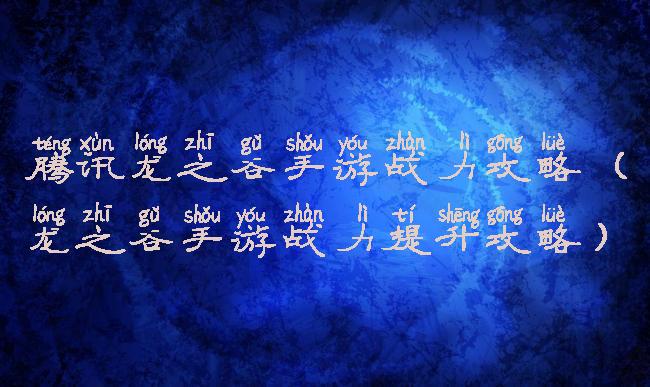 téng xùn lóng zhī gǔ shǒu yóu zhàn lì gōng lüè
腾讯龙之谷手游战力攻略（
lóng zhī gǔ shǒu yóu zhàn lì tí shēng gōng lüè
龙之谷手游战力提升攻略）